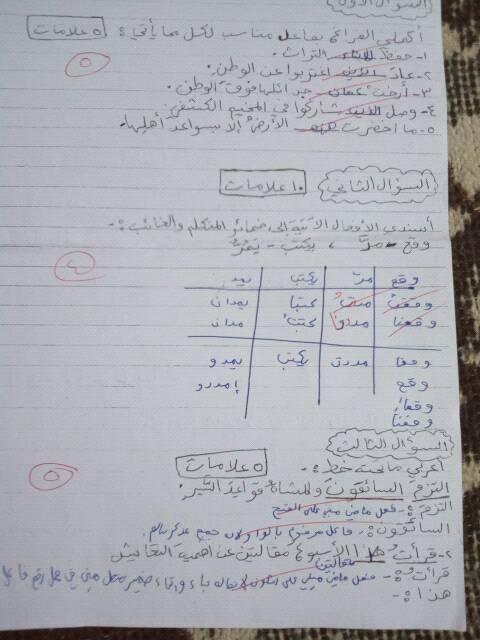 السؤال الأول
أكملي الفراغ بفاعل مناسب لكل مما يأتي: ٥ علامات
١- حفظ الأبناء التراث.
٥
٢- عاد الذين اغتربوا عن الوطن.
٣- أرخت عمان جدائلها فوق الوطن.
٤- وصل الذين شاركوا في المخيم الكشفي.
٥- ما اخضرت هذه الأرض إلا بسواعد أهلها.
السؤال الثاني ١٠ علامات
أسندي الأفعال الآتية إلى ضمائر المتكلم والغائب:-
وقع - مرّ ، يكتب - يمرّ
٤
وقع مرّ يكتب يمر
وقعتُ مررتُ يكتبا يمدان
وقعنا يكتب مدان
وقعا يكتب يمدو
وقع إمددو
وقعا
وقعنا
السؤال الثالث
٥ علامات
أعربي ما تحته خط:-
٥
التزم السائقون والمشاة قواعد السّير.
التزم:- فعل ماضٍ مبني على الفتح
السائقون:- فاعل مرفوع بالواو لأنه جمع مذكر سالم
٢- قرأتُ هذا الأسبوع مقالتين عن أهمية التعايش
مقالتين
قرأت:- فعل ماضٍ مبني على السكون لاتصاله بتاء و تاء ضمير متصل مبني في محل رفع فاعل
هذا:-